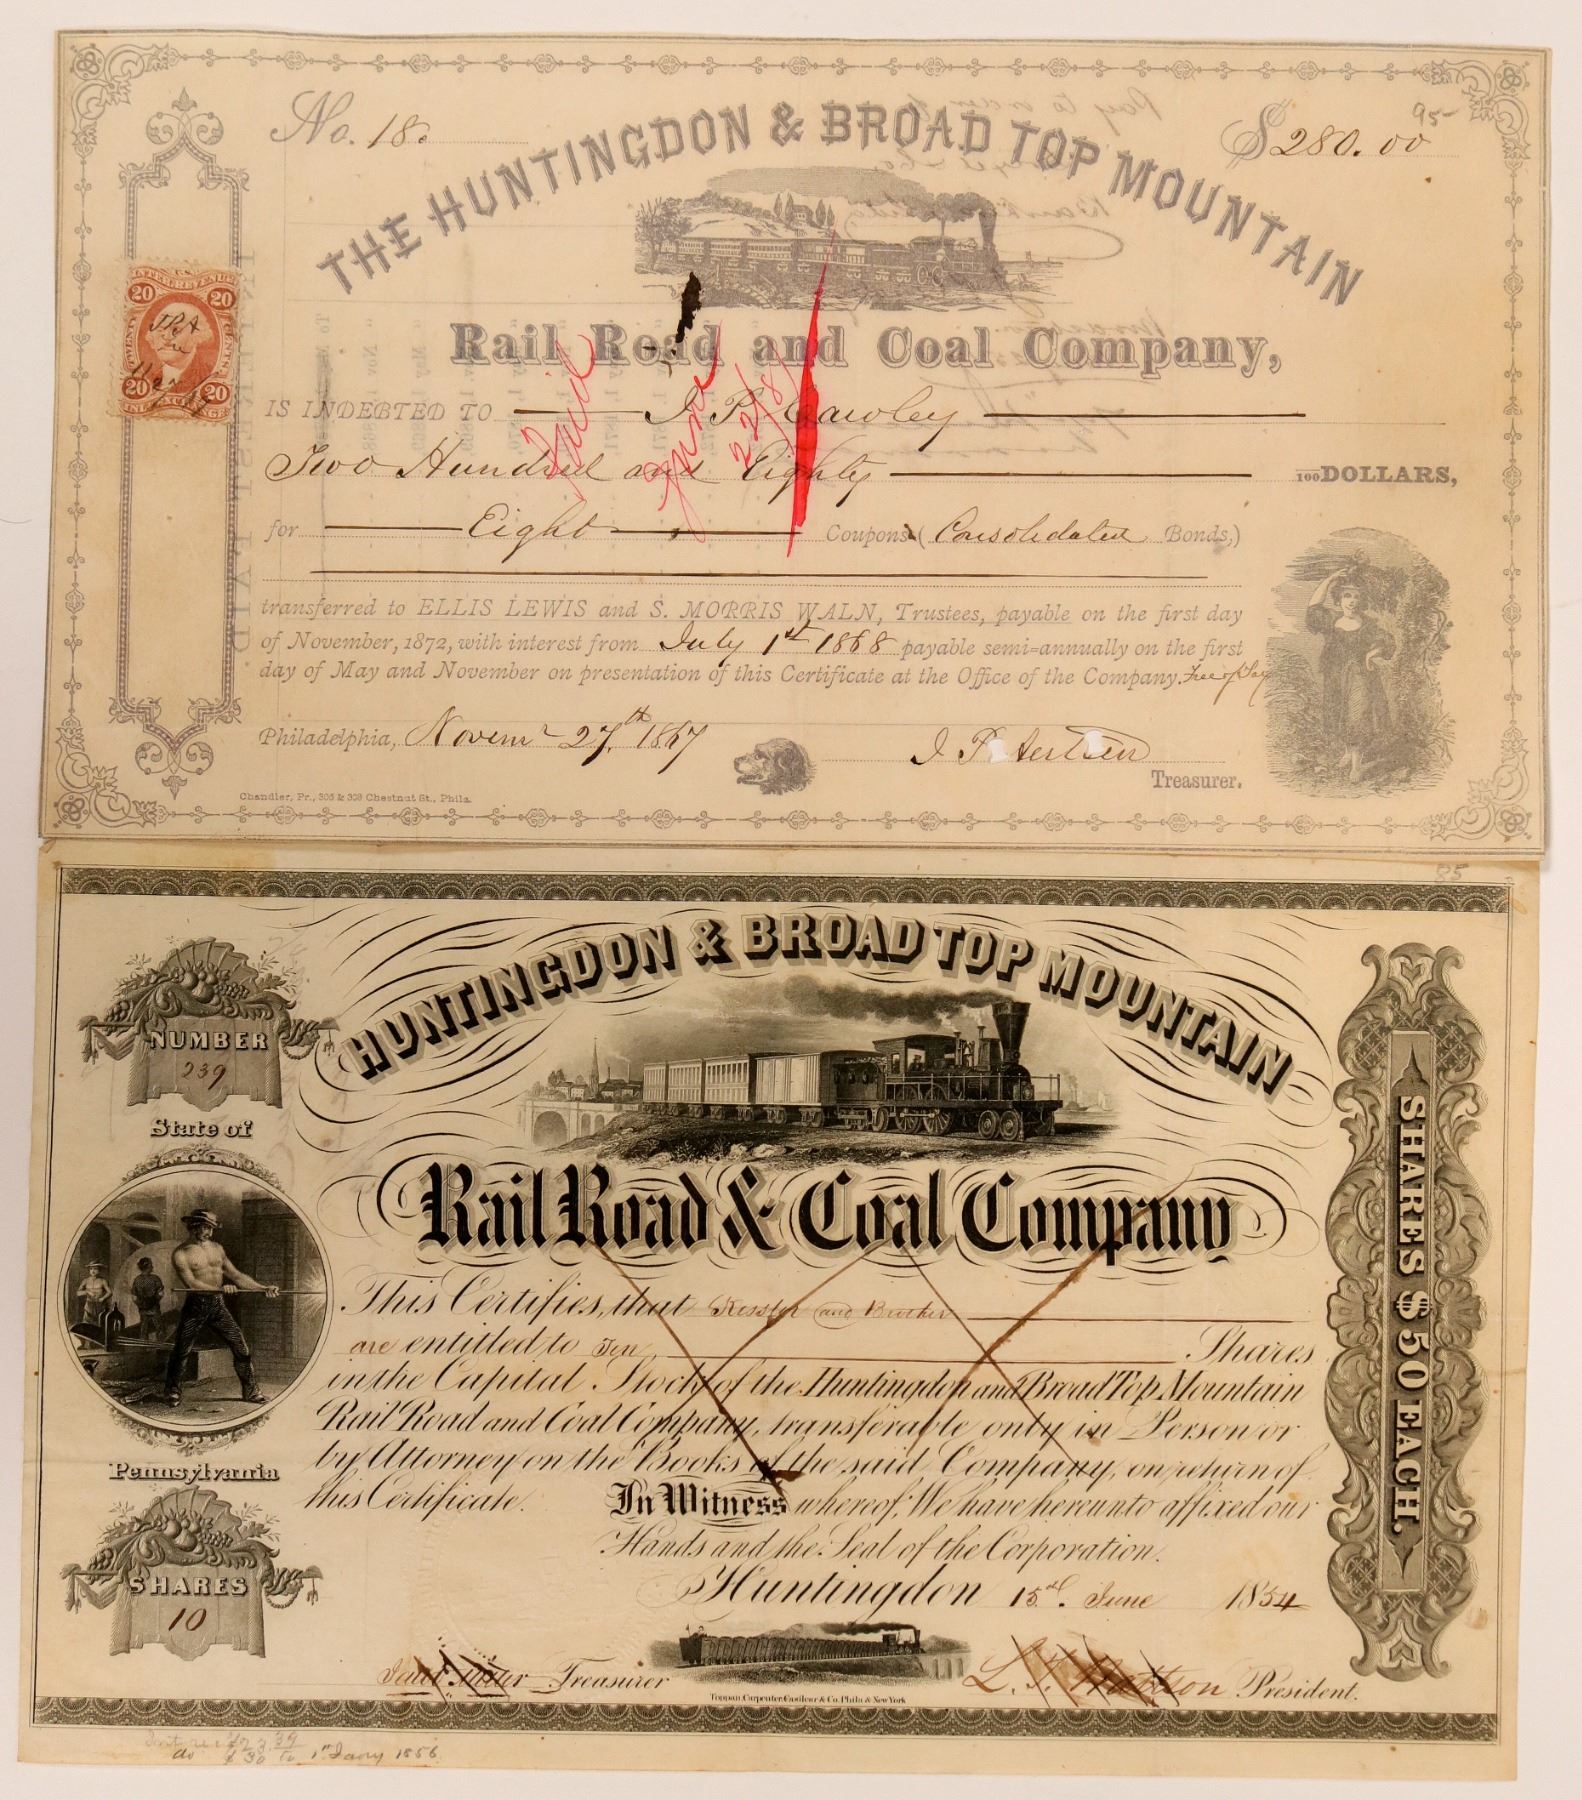 No. 18.
$280.00
95-
THE HUNTINGDON & BROAD TOP MOUNTAIN
Rail Road and Coal Company,
U.S.
INTER. REVENUE
20 20
TWENTY CENTS
20 20
Paid
June
22/8
IS INDEBTED TO J. P. Cawley
Two Hundred and Eighty 100 DOLLARS,
for Eight Coupons (Consolidated Bonds,)
transferred to ELLIS LEWIS and S. MORRIS WALN, Trustees, payable on the first day
of November, 1872, with interest from July 1st 1868 payable semi=annually on the first
day of May and November on presentation of this Certificate at the Office of the Company. Free of Tax
Philadelphia, Novem 27th. 1867
J. P.
Treasurer.
Chandler, Pr., 306 & 308 Chestnut St., Phila.
INTEREST PAID.
85
NUMBER
239
State of
Pennsylvania
SHARES
10
HUNTINGDON & BROAD TOP MOUNTAIN
Rail Road & Coal Company
This Certifies, that Kessler and Brother
are entitled to Ten Shares
in the Capital Stock of the Huntingdon and Broad Top Mountain
Rail Road and Coal Company, transferable only in Person or
by Attorney on the Books of the said Company, on return of
this Certificate. In Witness whereof, We have hereunto affixed our
Hands and the Seal of the Corporation.
Huntingdon 15th. June 1854
Treasurer
President.
Toppan, Carpenter, Casilear & Co. Phila & New York
SHARES $50 EACH.
do $30 to 1st Jany 1856